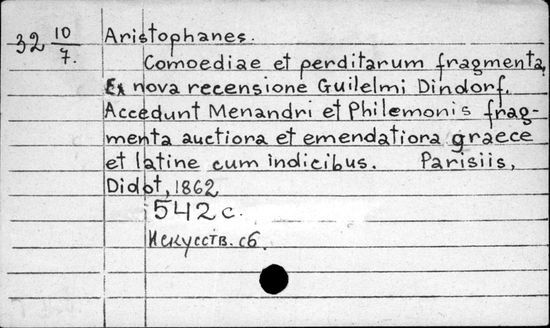 32 10/7. Aristophanes.
Comoediae et perditarum fragmenta,
Ex nova recensione Guilelmi Dindorf.
Accedunt Menandri et Philemonis frag-
menta auctiora et emendatiora graece
et latine cum indicibus. Parisiis,
Didot, 1862
542 c.
Искусств. сб.